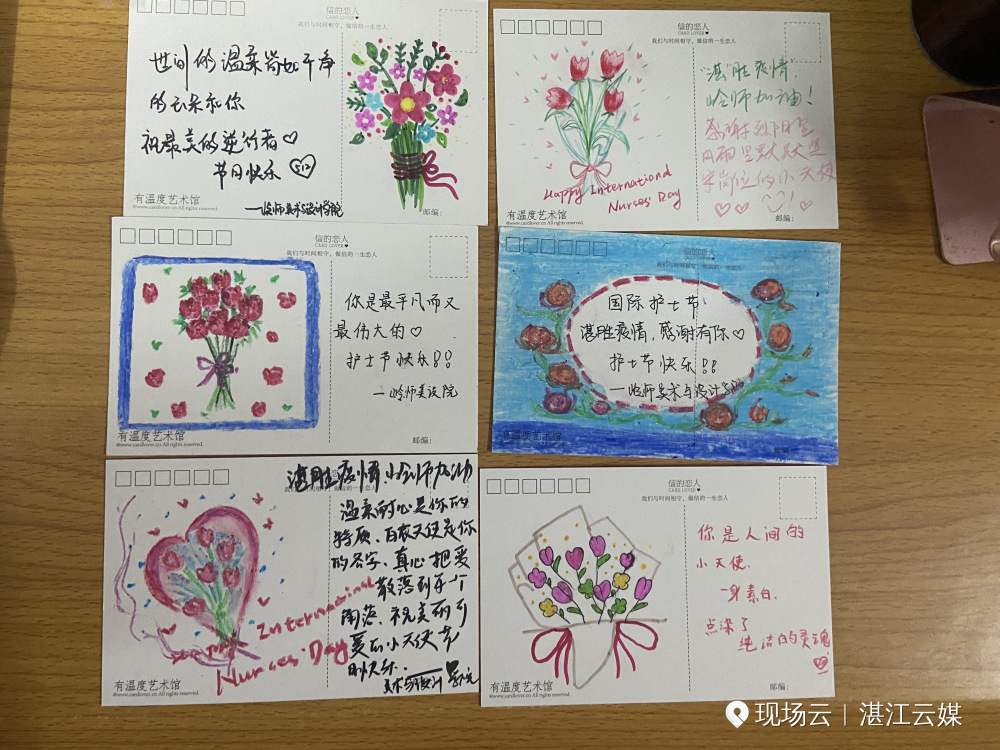 信的恋人
CARD LOVER♥
我们与时间相守，做信的一生恋人
世间的温柔皆如干净
的云朵和你
祝最美的逆行者♡
节日快乐 512
—岭师美术与设计学院
有温度艺术馆
©www.cardlover.cn All rights reserved.
邮编:
信的恋人
CARD LOVER♥
我们与时间相守，做信的一生恋人
"湛"胜疫情
岭师加油!
感谢
默默坚
守岗位的小天使
Happy International
Nurses' Day
有温度艺术馆
©www.cardlover.cn All rights reserved.
邮编:
信的恋人
CARD LOVER♥
我们与时间相守，做信的一生恋人
你是最平凡而又
最伟大的♡
护士节快乐!!
—岭师美设院
有温度艺术馆
©www.cardlover.cn All rights reserved.
邮编:
信的恋人
CARD LOVER♥
我们与时间相守，做信的一生恋人
国际护士节
湛胜疫情，感谢有你♡
护士节快乐!!
—岭师美术与设计学院
有温度艺术馆
©www.cardlover.cn All rights reserved.
湛胜疫情 岭师加油
温柔耐心是你的
特质、白衣天使是你
的名字，真心把爱
散落到每个
角落、祝美丽可
爱的小天使节
日快乐.
美术与设计学院
International
Nurses' Day
有温度艺术馆
©www.cardlover.cn All rights reserved.
信的恋人
CARD LOVER♥
我们与时间相守，做信的一生恋人
你是人间的
小天使.
一身素白.
点染了
纯洁的灵魂
有温度艺术馆
©www.cardlover.cn All rights reserved.
邮编:
现场云|湛江云媒